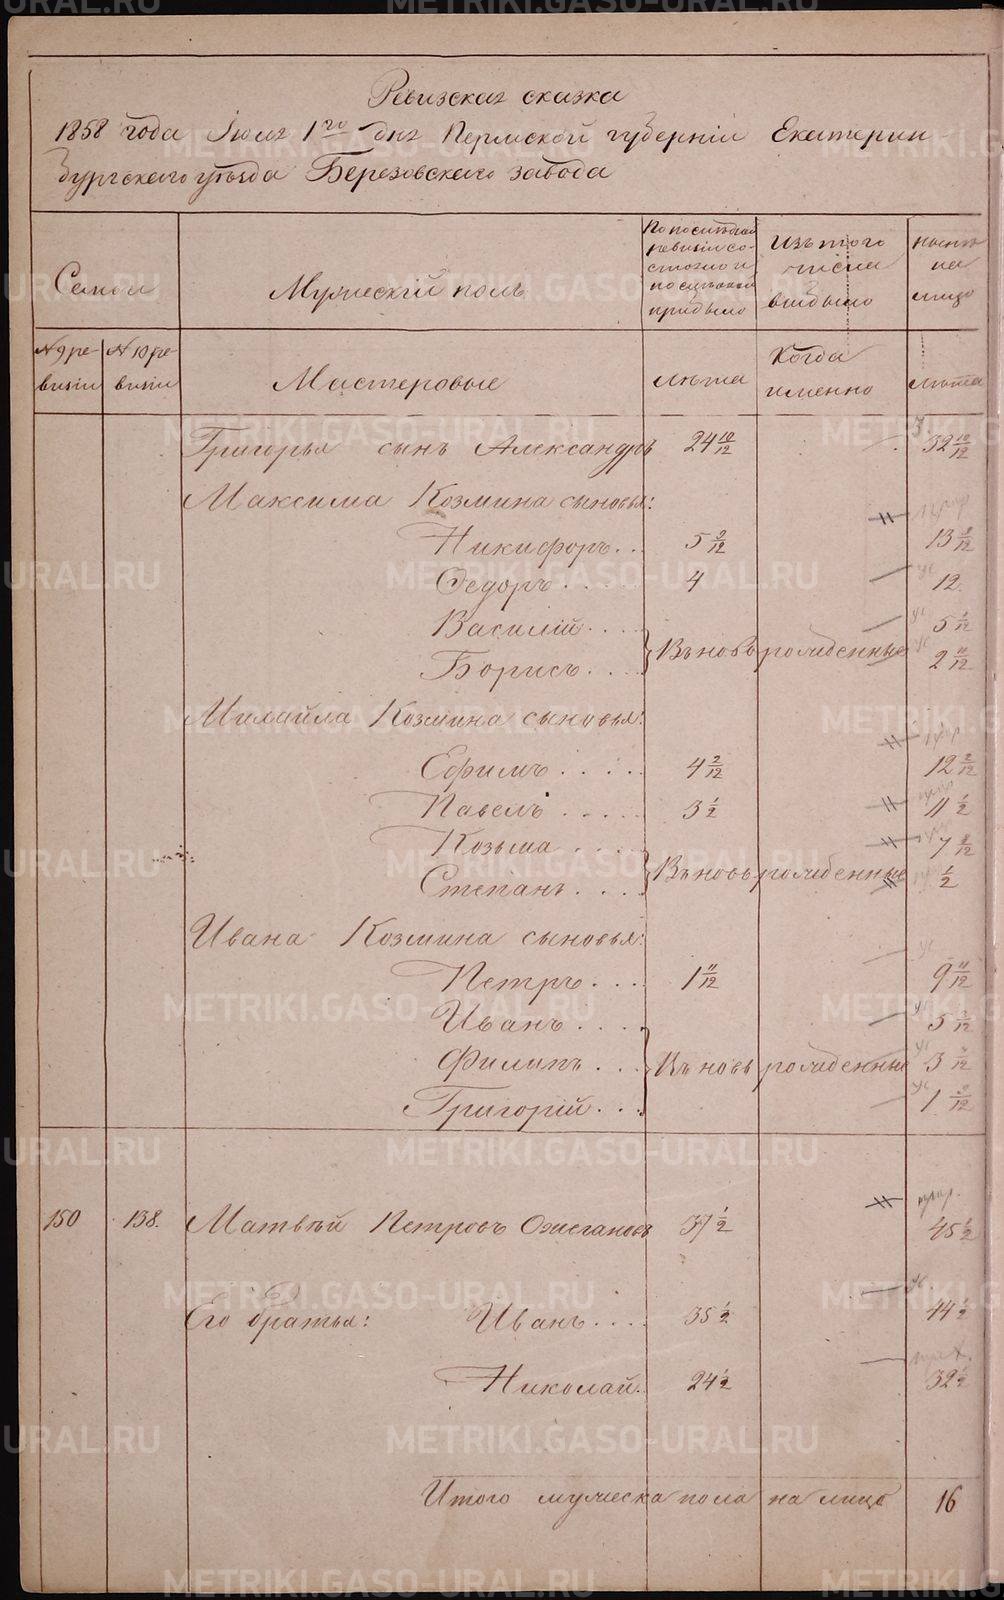 Ревизская сказка
1858 года Июля 1го дня Пермской губерніи Екатерин
бургскаго уѣзда Березовскаго завода
Семьи
Мужескій полъ
По последней
ревизіи со-
стояло и
после оной
прибыло
Изъ того
числа
выбыло
ныне
на
лицо
№ 9 ре-
визіи
№ 10 ре-
визіи
Мастеровые
лѣта
Когда
именно
лѣта
Григорья сынъ Александръ 24 10/12 32 10/12
Максима Козмина сыновья:
Никифоръ... 5 9/12 13 9/12
Ѳедоръ..... 4 12
Василій.... 5 1/12
Вновь рожденные
Борисъ.... 2 11/12
Михайла Козмина сыновья:
Ефимъ..... 4 2/12 12 2/12
Павелъ..... 3 1/2 11 1/2
Козьма.... 7 8/12
Вновь рожденные
Степанъ.... 1/2
Ивана Козмина сыновья:
Петръ... 1 11/12 9 11/12
Иванъ.... 5 3/12
Филипъ... Вновь рожденные 3
Григорій... 1 9/12
150 138. Матвѣй Петровъ Ожегановъ 37 1/2 45 1/2
Его братья: Иванъ.... 35 1/2 44 1/2
Николай. 24 1/2 32 1/2
Итого мужеска пола на лицо 16
METRIKI.GASO-URAL.RU